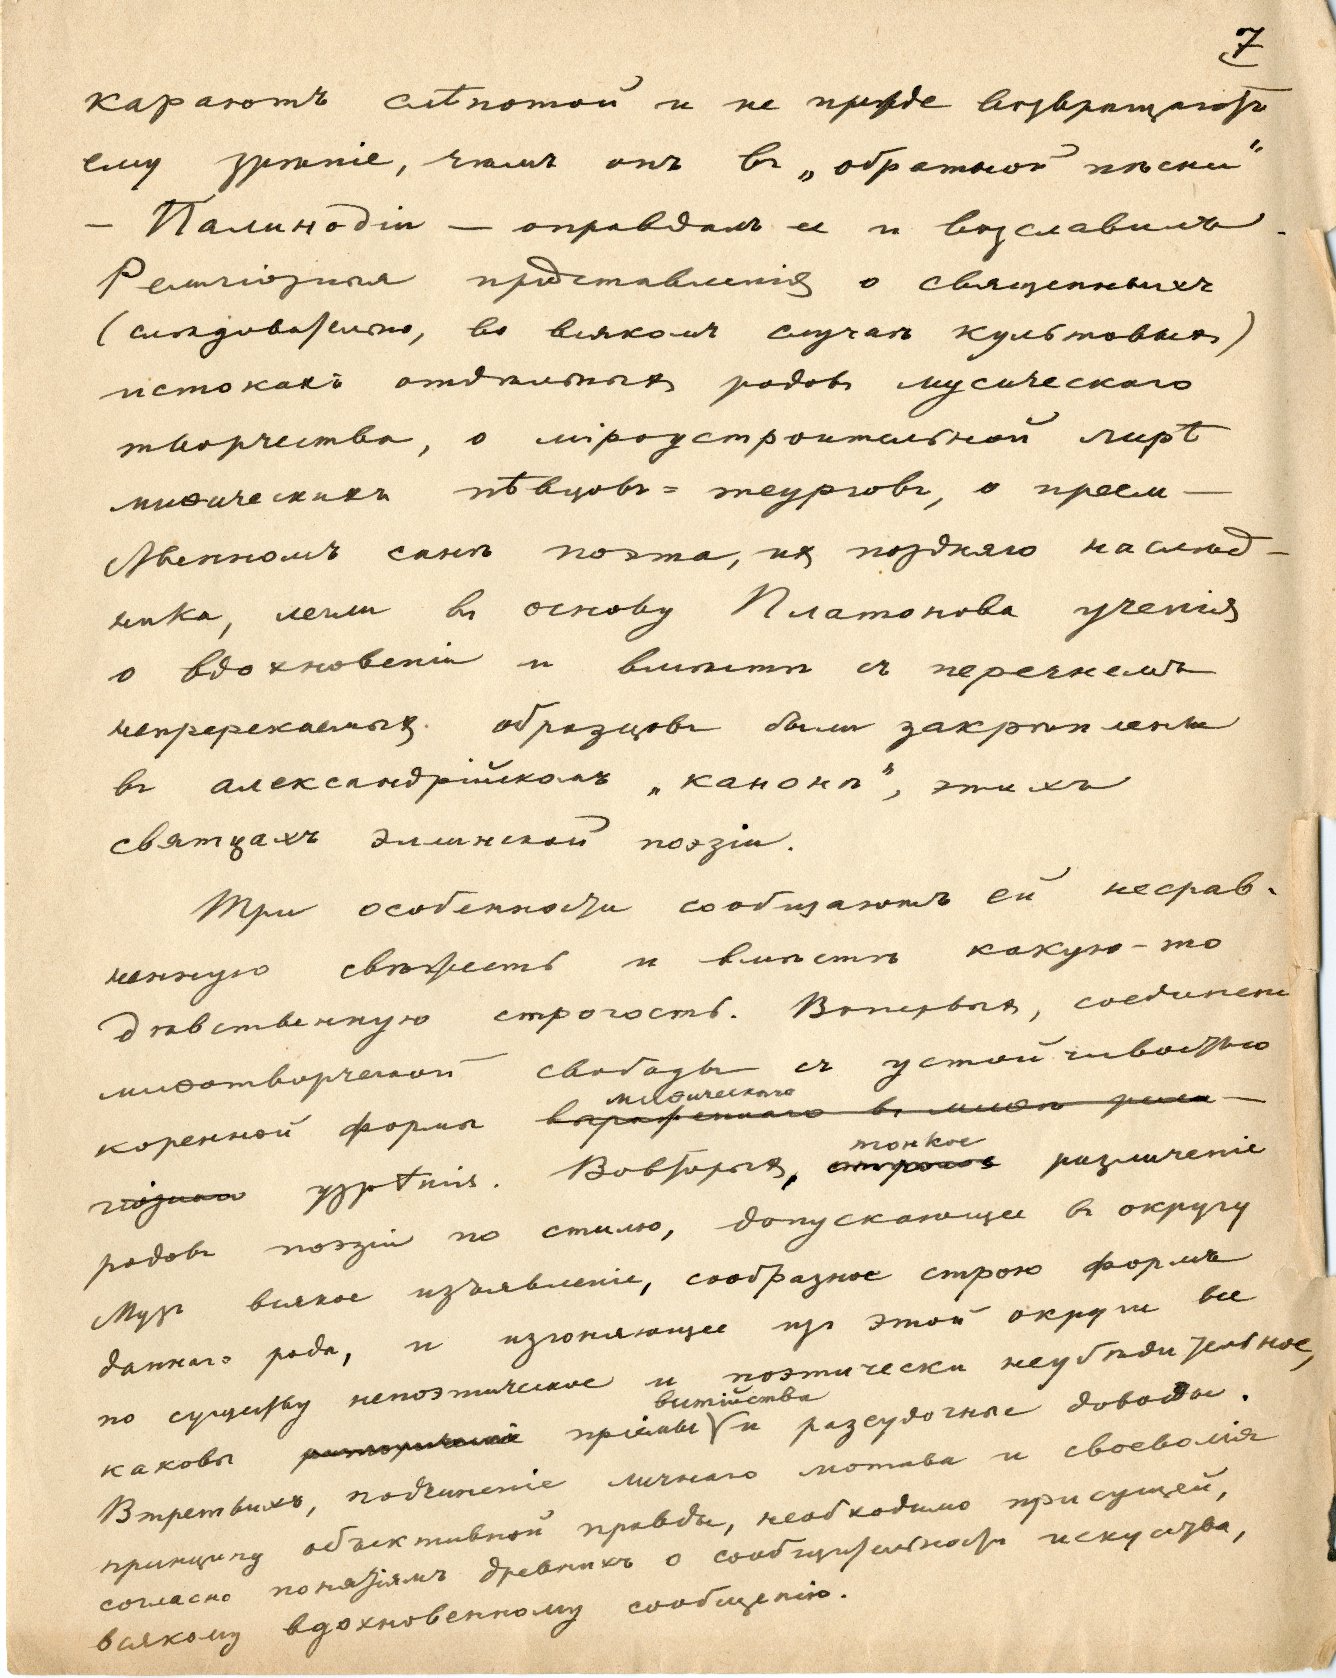 7
караютъ слѣпотой и не прежде возвращаютъ
ему зрѣніе, чѣмъ онъ въ „обратной пѣсни“
— Палинодіи — оправдалъ ее и возславилъ.
Религіозныя представленія о священныхъ
(слѣдовательно, во всякомъ случаѣ культовыхъ)
истокахъ отдѣльныхъ родовъ мусическаго
творчества, о міроустроительной лирѣ
миѳическихъ пѣвцовъ=теурговъ, о преем—
ственномъ санѣ поэта, ихъ поздняго наслѣд—
ника, легли въ основу Платонова ученія
о вдохновеніи и вмѣстѣ съ перечнемъ
непререкаемыхъ образцовъ были закрѣплены
въ александрійскомъ „канонѣ“, этихъ
святцахъ эллинской поэзіи.
Три особенности сообщаютъ ей несрав-
ненную свѣжесть и вмѣстѣ какую-то
дѣвственную строгость. Вопервыхъ, соединеніе
миѳотворческой свободы съ устойчивостью
миѳическаго
коренной формы выраженнаго въ миѳѣ рели—
тонкое
гіознаго узрѣнія. Вовторыхъ, строгое различеніе
родовъ поэзіи по стилю, допускающее въ округу
Музъ всякое изъявленіе, сообразное строю формъ
даннаго рода, и изгоняющее изъ этой округи все
по существу непоэтическое и поэтически неубѣдительное,
витійства
каковы риторическіе пріемы и разсудочные доводы.
Втретьихъ, подчиненіе личнаго мотива и своеволія
принципу объективной правды, необходимо присущей,
согласно понятіямъ древнихъ о сообщительности искусства,
всякому вдохновенному сообщенію.